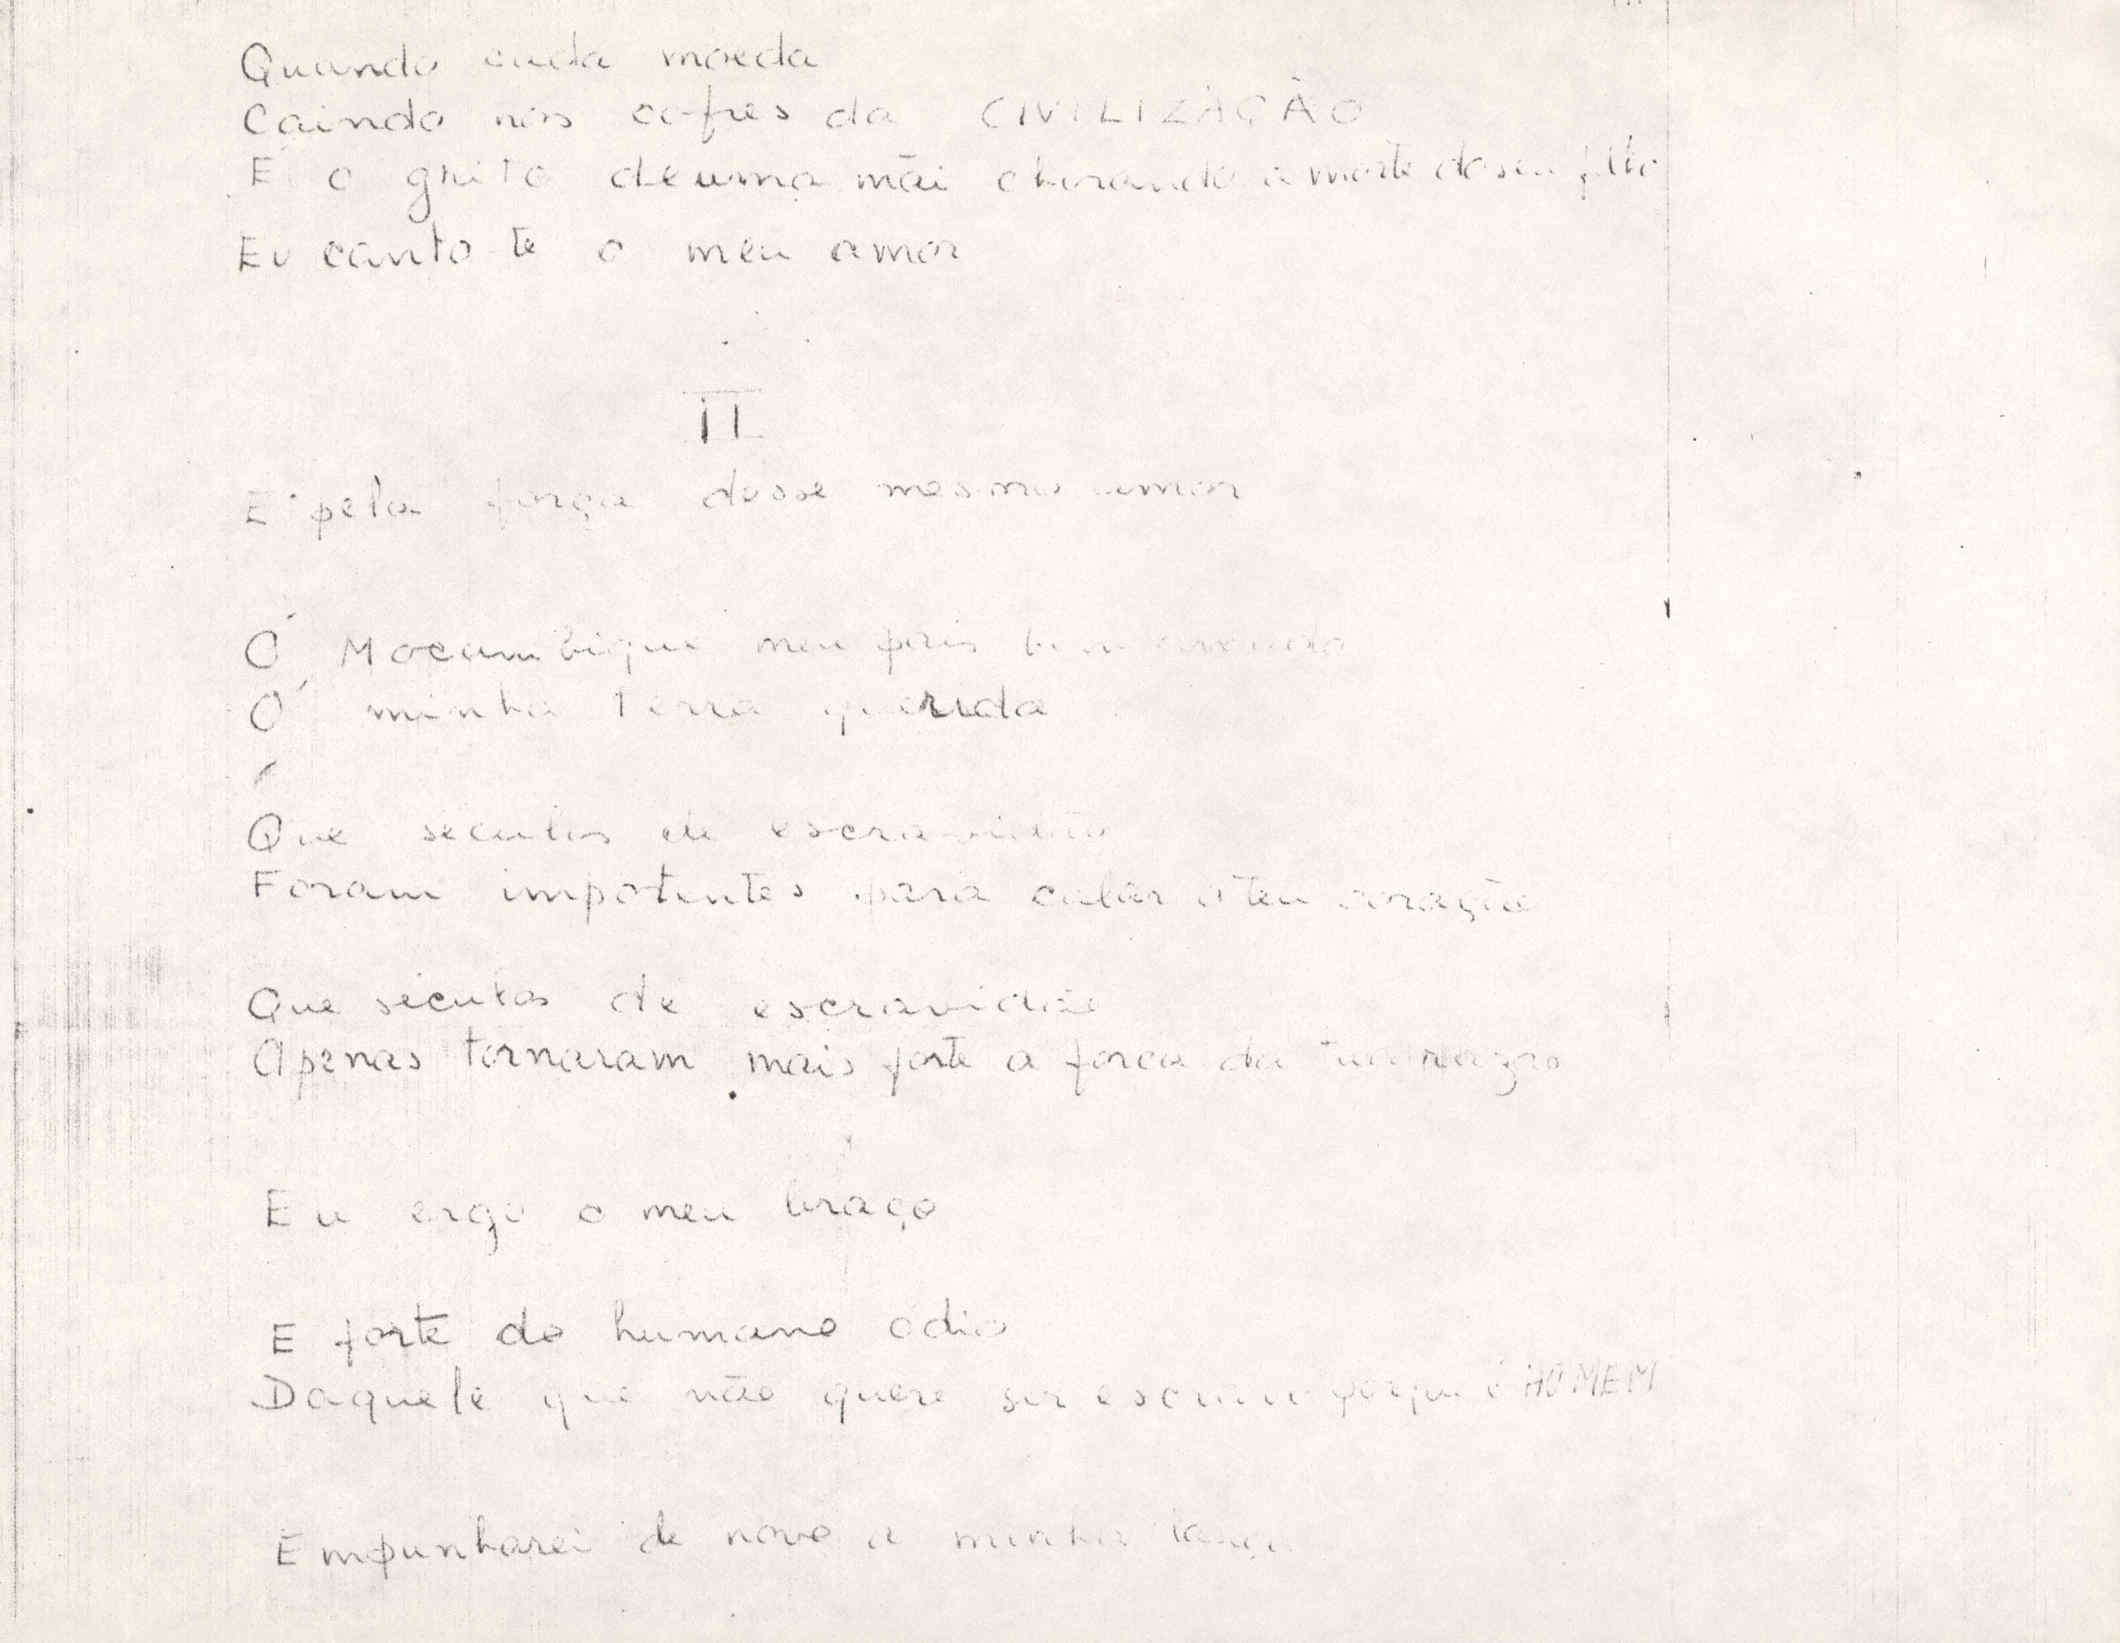 Quando cada moeda
Caindo nos cofres da CIVILIZAÇÃO
É o grito de uma mãi chorando a morte do seu filho
Eu canto-te o meu amor
II
E pela força desse mesmo amor
Ó Mocambique meu pais bem amado
Ó minha terra querida
Que seculos de escravidão
Foram impotentes para calar o teu coração
Que séculos de escravidão
Apenas tornaram mais forte a forca da tua razão
Eu ergo o meu braço
E forte do humano ódio
Daquele que não quere ser escravo porque é HOMEM
Empunharei de novo a minha lança